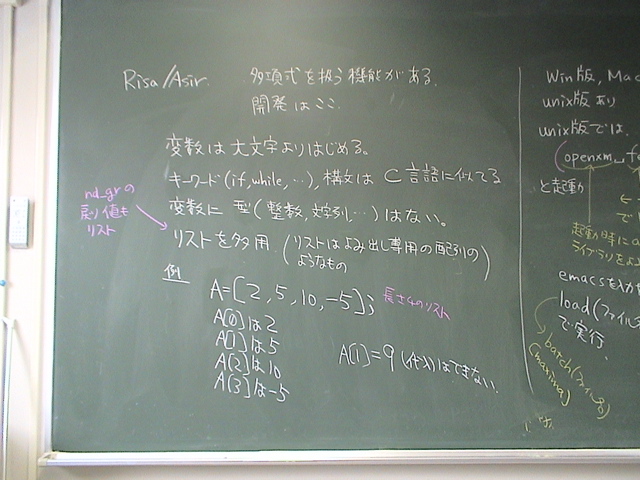 Risa/Asir 多項式を扱う機能がある.
開発はここ.
変数は大文字よりはじめる。
キーワード(if,while,…),構文は C言語に似てる
変数に 型(整数,文字列,…)はない。
nd_grの
戻り値も
リスト
リストを多用 (リストはよみ出し専用の配列の
ようなもの)
例
A=[2,5,10,-5]; 長さ4のリスト
A[0]は2
A[1]は5
A[2]は10
A[3]は-5
A[1]=9 (代入)はできない.
Win版, Mac
unix版あり
unix版では,
(openxm
と起動
起動時に
ライブラリを
emacsを入力
load(ファイル
で実行.
batch(ファイル
(maxima)